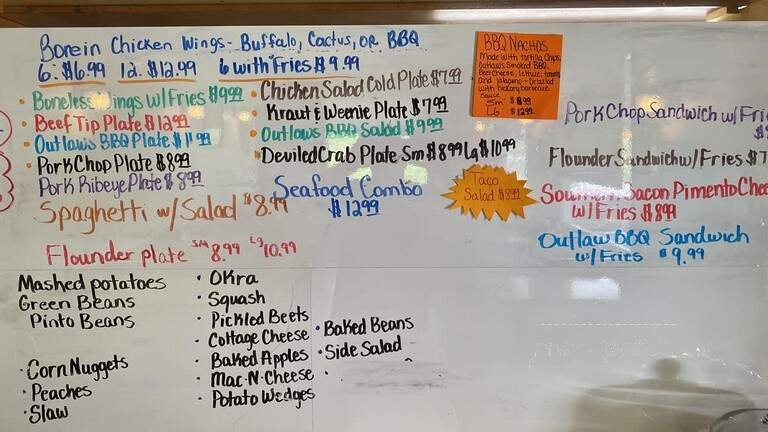 Borein Chicken Wings - Buffalo, Cactus, or BBQ
6: $6.99 12: $12.99 6 with Fries $9.99
• Boneless Wings w/ Fries $9.99
• Beef Tip Plate $12.99
• Outlaws BBQ Plate $11.99
• Pork Chop Plate $8.99
• Pork Ribeye Plate $8.99
Spaghetti w/ Salad $8.99
Flounder plate sm 8.99 Lg 10.99
• Chicken Salad Cold Plate $7.99
• Kraut & Weenie Plate $7.99
• Outlaws BBQ Salad $9.99
• Deviled Crab Plate Sm $8.99 Lg $10.99
Seafood Combo
$12.99
BBQ Nachos
Made with Tortilla Chips,
Outlaws Smoked BBQ,
Beer Cheese, lettuce, tomato
and jalapeno - Drizzled
with hickory barbecue
sauce
Sm $8.99
Lg $12.99
Taco
Salad $8.99
Pork Chop Sandwich w/ Fri
Flounder Sandwich w/ Fries $7
Southern Bacon Pimento Chee
w/ Fries $8.99
Outlaw BBQ Sandwich
w/ Fries $9.99
Mashed potatoes
Green Beans
Pinto Beans
• Corn Nuggets
• Peaches
• Slaw
• Okra
• Squash
• Pickled Beets
• Cottage Cheese
• Baked Apples
• Mac-N-Cheese
• Potato Wedges
• Baked Beans
• Side Salad
•